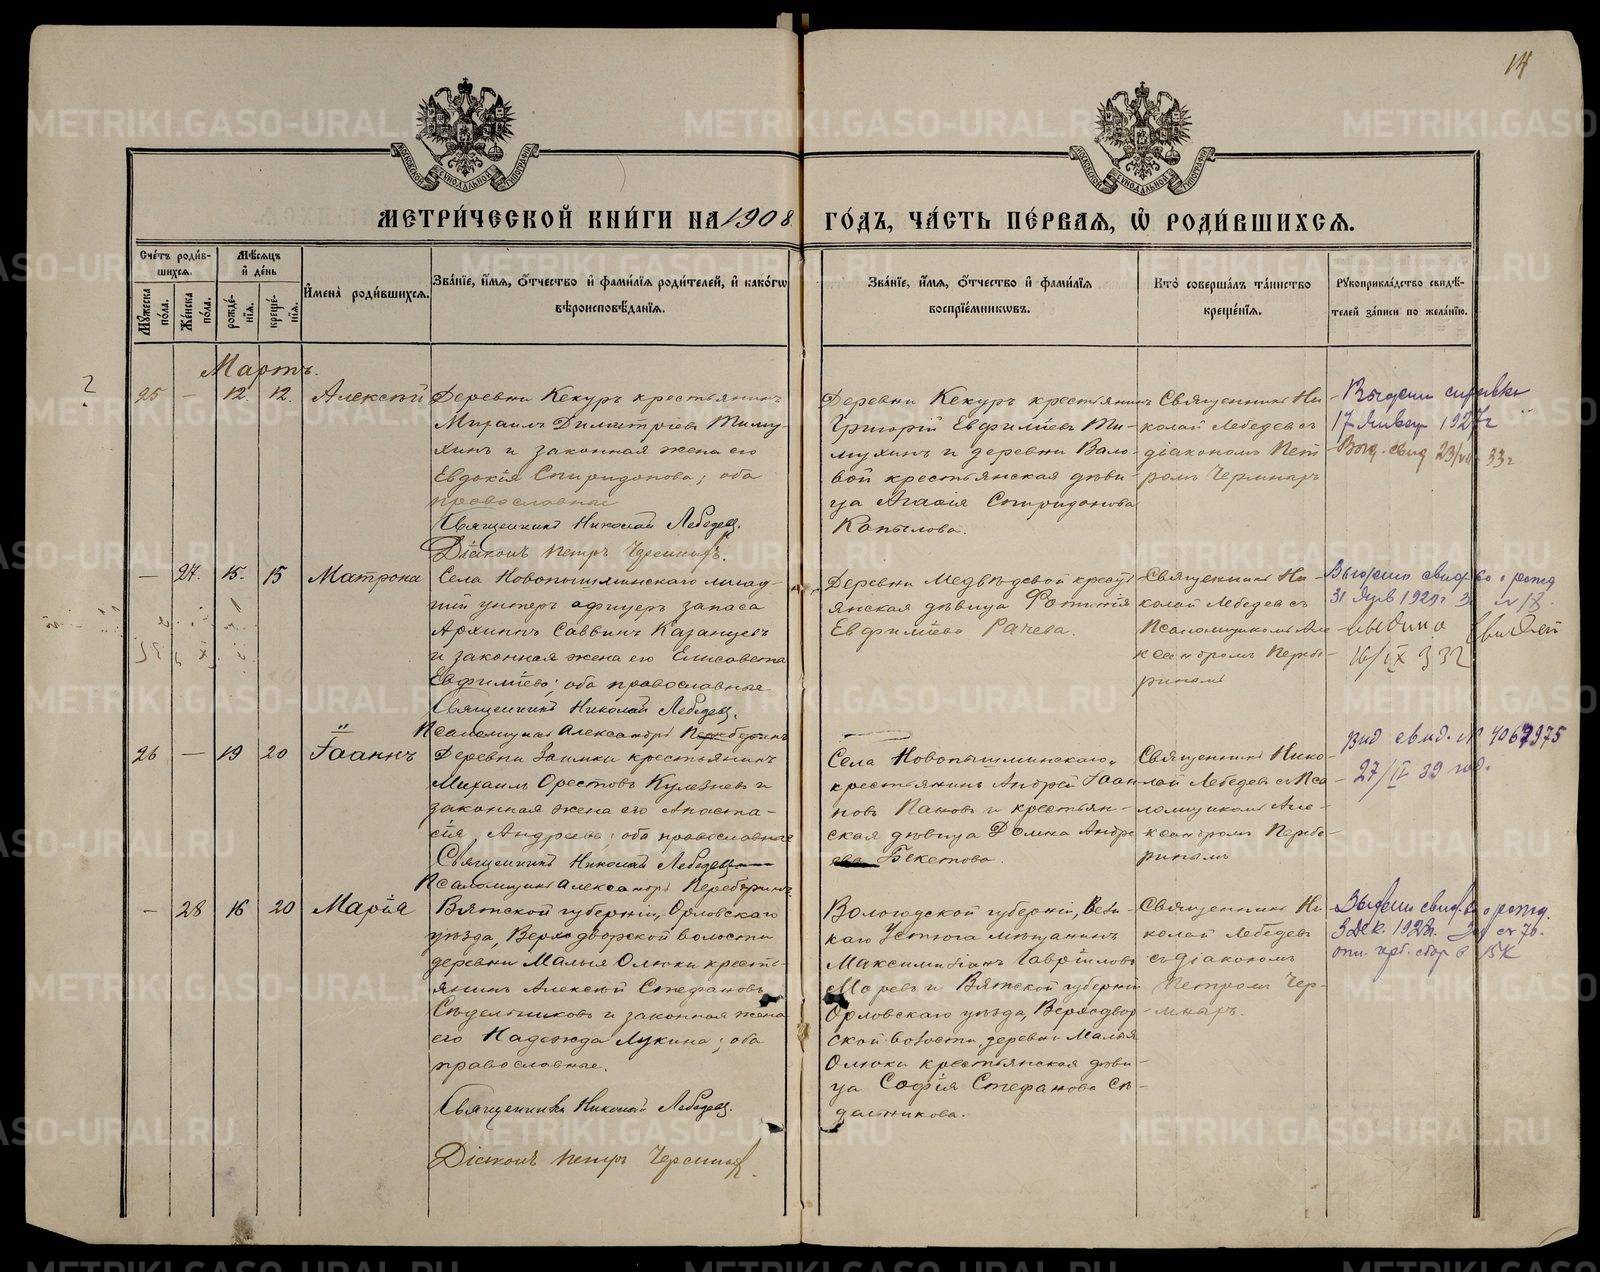 14
МОСКОВСКОЙ СѴНОДАЛЬНОЙ ТИПОГРАФІИ
МОСКОВСКОЙ СѴНОДАЛЬНОЙ ТИПОГРАФІИ
МЕТРИ́ЧЕСКОЙ КНИ́ГИ НА 1908 ГО́ДЪ, ЧА́СТЬ ПЕ́РВАѦ, Ѡ҆ РОДИ́ВШИХСѦ.
Сче́тъ роди́в-
шихсѧ.
Мꙋ́жеска по́ла.
Же́нска по́ла.
Мѣ́сѧцъ
и҆ де́нь
рожде́-
нїѧ.
креще́-
нїѧ.
И҆мена̀ роди́вшихсѧ.
Зва́нїе, и҆́мѧ, ѻ҆́тчество и҆ фами́лїѧ роди́телей, и҆ како́гѡ
вѣроисповѣ́данїѧ.
Зва́нїе, и҆́мѧ, ѻ҆́тчество и҆ фами́лїѧ
воспрїе́мникѡвъ.
Кто̀ соверша́лъ та́инство
креще́нїѧ.
Рꙋкоприкла́дство свидѣ́-
телей за́писи по жела́нїю.
Мартъ.
?
25 — 12. 12. Алексѣй
Деревни Кекуръ крестьянинъ
Михаилъ Димитріевъ Тиму-
хинъ и законная жена его
Евдокія Спиридонова; оба
православные
Священникъ Николай Лебедевъ.
Діаконъ Петръ
Деревни Кекуръ крестьянинъ
Григорій Евфиміевъ Ти-
мухинъ и деревни Вало-
вой крестьянская дѣви-
ца Агаѳія Спиридонова
Копылова.
Священникъ Ни-
колай Лебедевъ съ
діакономъ Пет
ромъ
17 Января 1927 г
Выд. свид 23/VII 33 г
— 27. 15. 15 Матрона
Села Новопышминскаго млад-
шій унтеръ офицеръ запаса
Архиппъ Саввинъ Казанцевъ
и законная жена его Елисавета
Евфиміева; оба православные
Священникъ Николай Лебедевъ.
Псаломщикъ Александръ
Деревни Медвѣдевой кресть
янская дѣвица Фотинія
Евфиміева Рачева.
Священникъ Ни-
колай Лебедевъ съ
Псаломщикомъ Але
ксандромъ Перебе-
ринымъ
16/IX 32
26 — 19 20 Іоаннъ
Деревни Заимки крестьянинъ
Михаилъ Орестовъ Кулезневъ и
законная жена его Анаста-
сія Андреева; оба православные
Священникъ Николай Лебедевъ
Псаломщикъ Александръ Переберинъ.
Села Новопышминскаго
крестьянинъ Андрей Іоан
новъ Пановъ и крестьян-
ская дѣвица Домна Андре
ева Бекетова.
Священникъ Нико-
лай Лебедевъ съ Пса
ломщикомъ Але-
ксандромъ Перебе-
ринымъ
27/II 39 год.
— 28 16 20 Марія
Вятской губерніи, Орловскаго
уѣзда, Верходворской волости
деревни Малыя Олюки кресть-
янинъ Алексѣй Стефановъ
Сѣдельниковъ и законная жена
его Надежда Лукина; оба
православные.
Священникъ Николай Лебедевъ.
Діаконъ Петръ
Вологодской губерніи, Вели-
каго Устюга мѣщанинъ
Максимиліанъ Гавріиловъ
Маревъ и Вятской губерніи
Орловскаго уѣзда, Верходвор-
ской волости, деревни Малыя
Олюки крестьянская дѣви-
ца Софія Стефанова Сѣ-
дельникова.
Священникъ Ни
колай Лебедевъ
съ діакономъ
Петромъ
METRIKI.GASO-URAL.RU